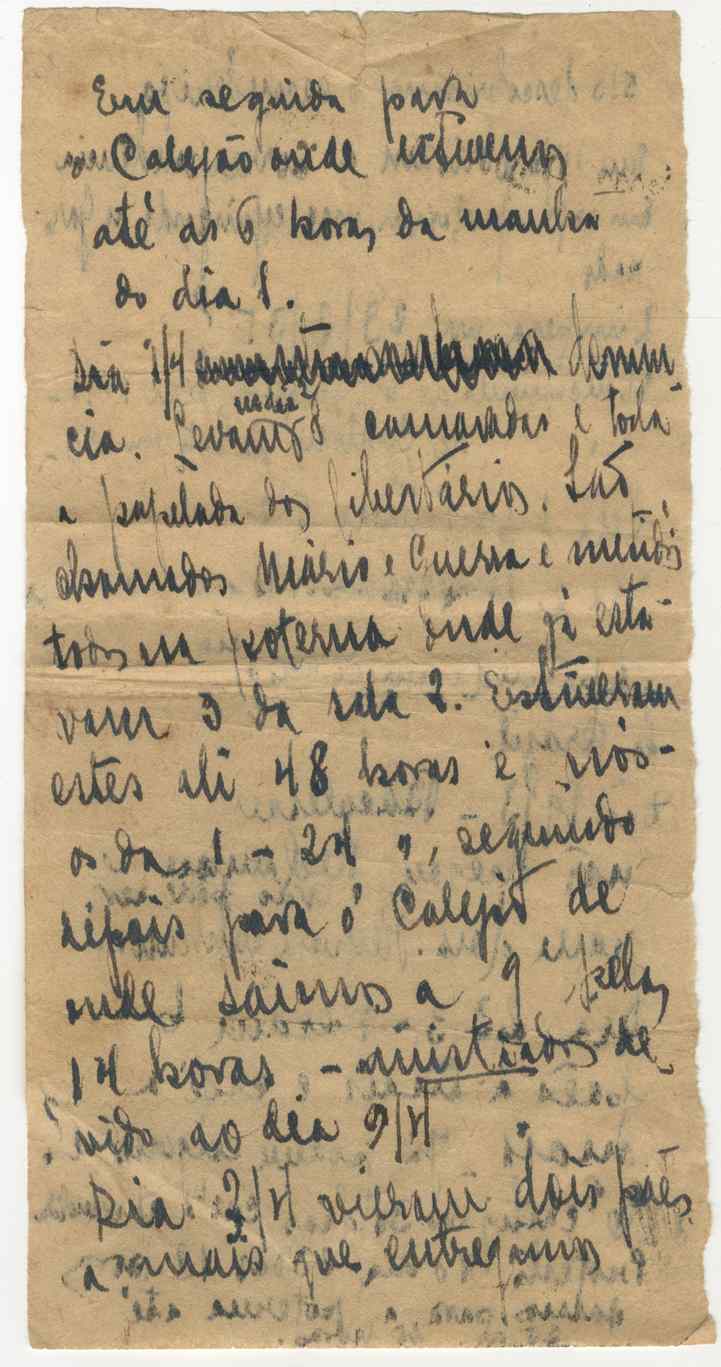 Em seguida para
Calejão onde estivemos
até as 6 horas da manha
do dia 1.
Dia 1/4 denun-
cia. Levam 8 camaradas e toda
a papelada dos libertários. São
chamados Mário e Guerra e metidos
todos na poterna onde já esta-
vam 3 da sala 2. Estiveram
estes ali 48 horas e nós-
os da 1 - 24 ", seguindo
depois para o Calejão de
onde saimos a 9 pelas
14 horas - de-
vido ao dia 9/4
Dia 2/4 vieram dois pães
a mais que entregamos